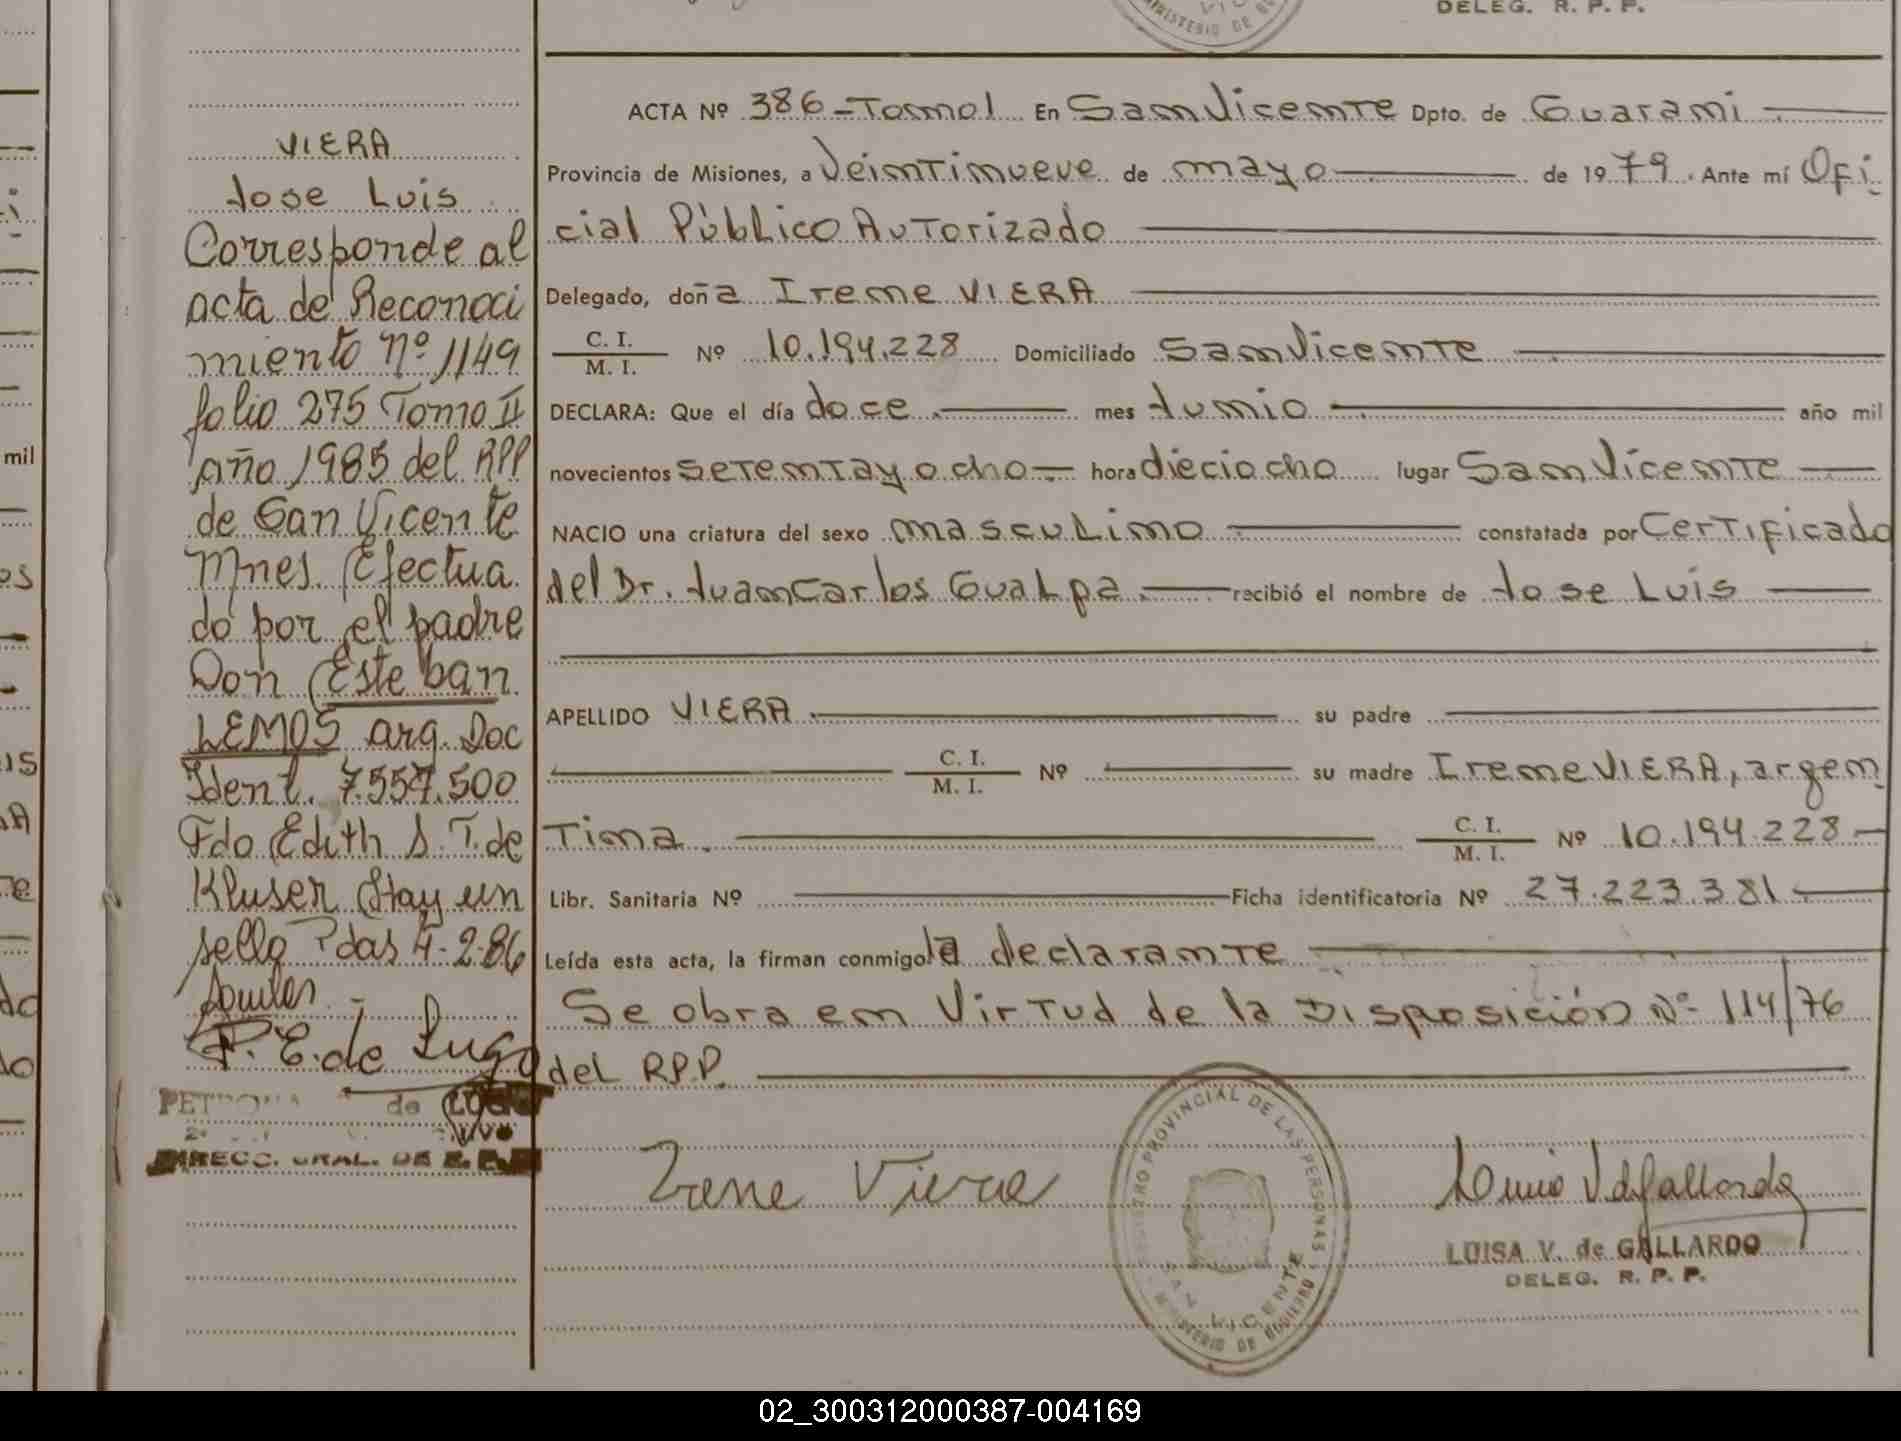 DELEG. R. P. P.
MINISTERIO DE
VIERA
Jose Luis
Corresponde al
acta de Reconoci
miento Nº 1149
folio 275 Tomo II
año 1985 del RPP
de San Vicente
Mnes. Efectua
do por el padre
Don Esteban
LEMOS arg. Doc
Ident. 7.557.500
Fdo Edith S. T. de
Kluser Hay un
sello Pdas 4-2-86
P. E. de Lugo
de LUGO
DIRECC. GRAL. DE R. P. P.
ACTA Nº 386-Tomo I En San Vicente Dpto. de Guarani
Provincia de Misiones, a Veintinueve de mayo de 1979. Ante mí Ofi
cial Público Autorizado
Delegado, doña Irene VIERA
C. I.
M. I. Nº 10.194.228 Domiciliado San Vicente
DECLARA: Que el día doce mes Junio año mil
novecientos setenta y ocho hora dieciocho lugar San Vicente
NACIO una criatura del sexo masculino constatada por Certificado
del Dr. Juan Carlos Gualpa recibió el nombre de Jose Luis
APELLIDO VIERA su padre
C. I.
M. I. Nº su madre Irene VIERA, argen
tina. C. I.
M. I. Nº 10.194.228
Libr. Sanitaria Nº Ficha identificatoria Nº 27.223.381
Leída esta acta, la firman conmigo la declarante
Se obra en Virtud de la Disposición Nº 114/76
del RPP.
Irene Viera
REGISTRO PROVINCIAL DE LAS PERSONAS
SAN VICENTE
MINISTERIO DE GOBIERNO
LUISA V. de GALLARDO
DELEG. R. P. P.
02_300312000387-004169